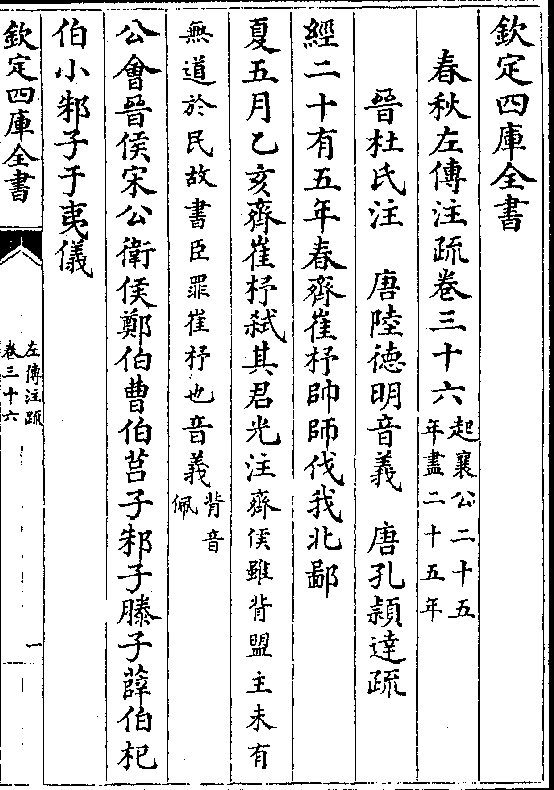 欽定四庫全書
春秋左傳注疏卷三十六起襄公二十五
年盡二十五年
晉杜氏注 唐陸德明音義 唐孔頴達疏
經二十有五年春齊崔杼帥師伐我北鄙
夏五月乙亥齊崔杼弑其君光注齊侯雖背盟主未有
無道於民故書臣罪崔杼也音義背音
佩
公會晉侯宋公衛侯鄭伯曹伯莒子邾子滕子薛伯杞
伯小邾子于夷儀
欽定四庫全書
左傳注疏
卷三十六
一